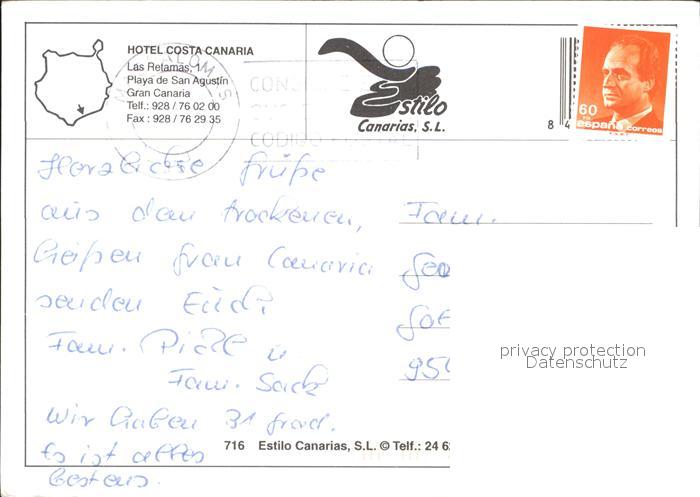 HOTEL COSTA CANARIA
Las Retamas, 1
Playa de San Agustín
Gran Canaria
Telf.: 928 / 76 02 00
Fax : 928 / 76 29 35
CODIGO
Estilo
Canarias, S.L.
8 4
60
PTA
españa correos
Herzliche Grüße
aus dem trockenen,
heißen Gran Canaria
senden Euch
Fam. u
Fam. Sack
Wir haben 31 Grad.
Es ist alles
bestens.
Fam.
95
privacy protection
Datenschutz
716 Estilo Canarias, S.L. © Telf.: 24 6